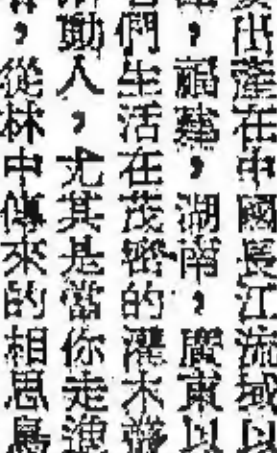 在中國長江流域以
，福建，湖南，廣東以
們生活在茂密的灌木叢
動人，尤其是當你走進
，從林中傳來的相思鳥